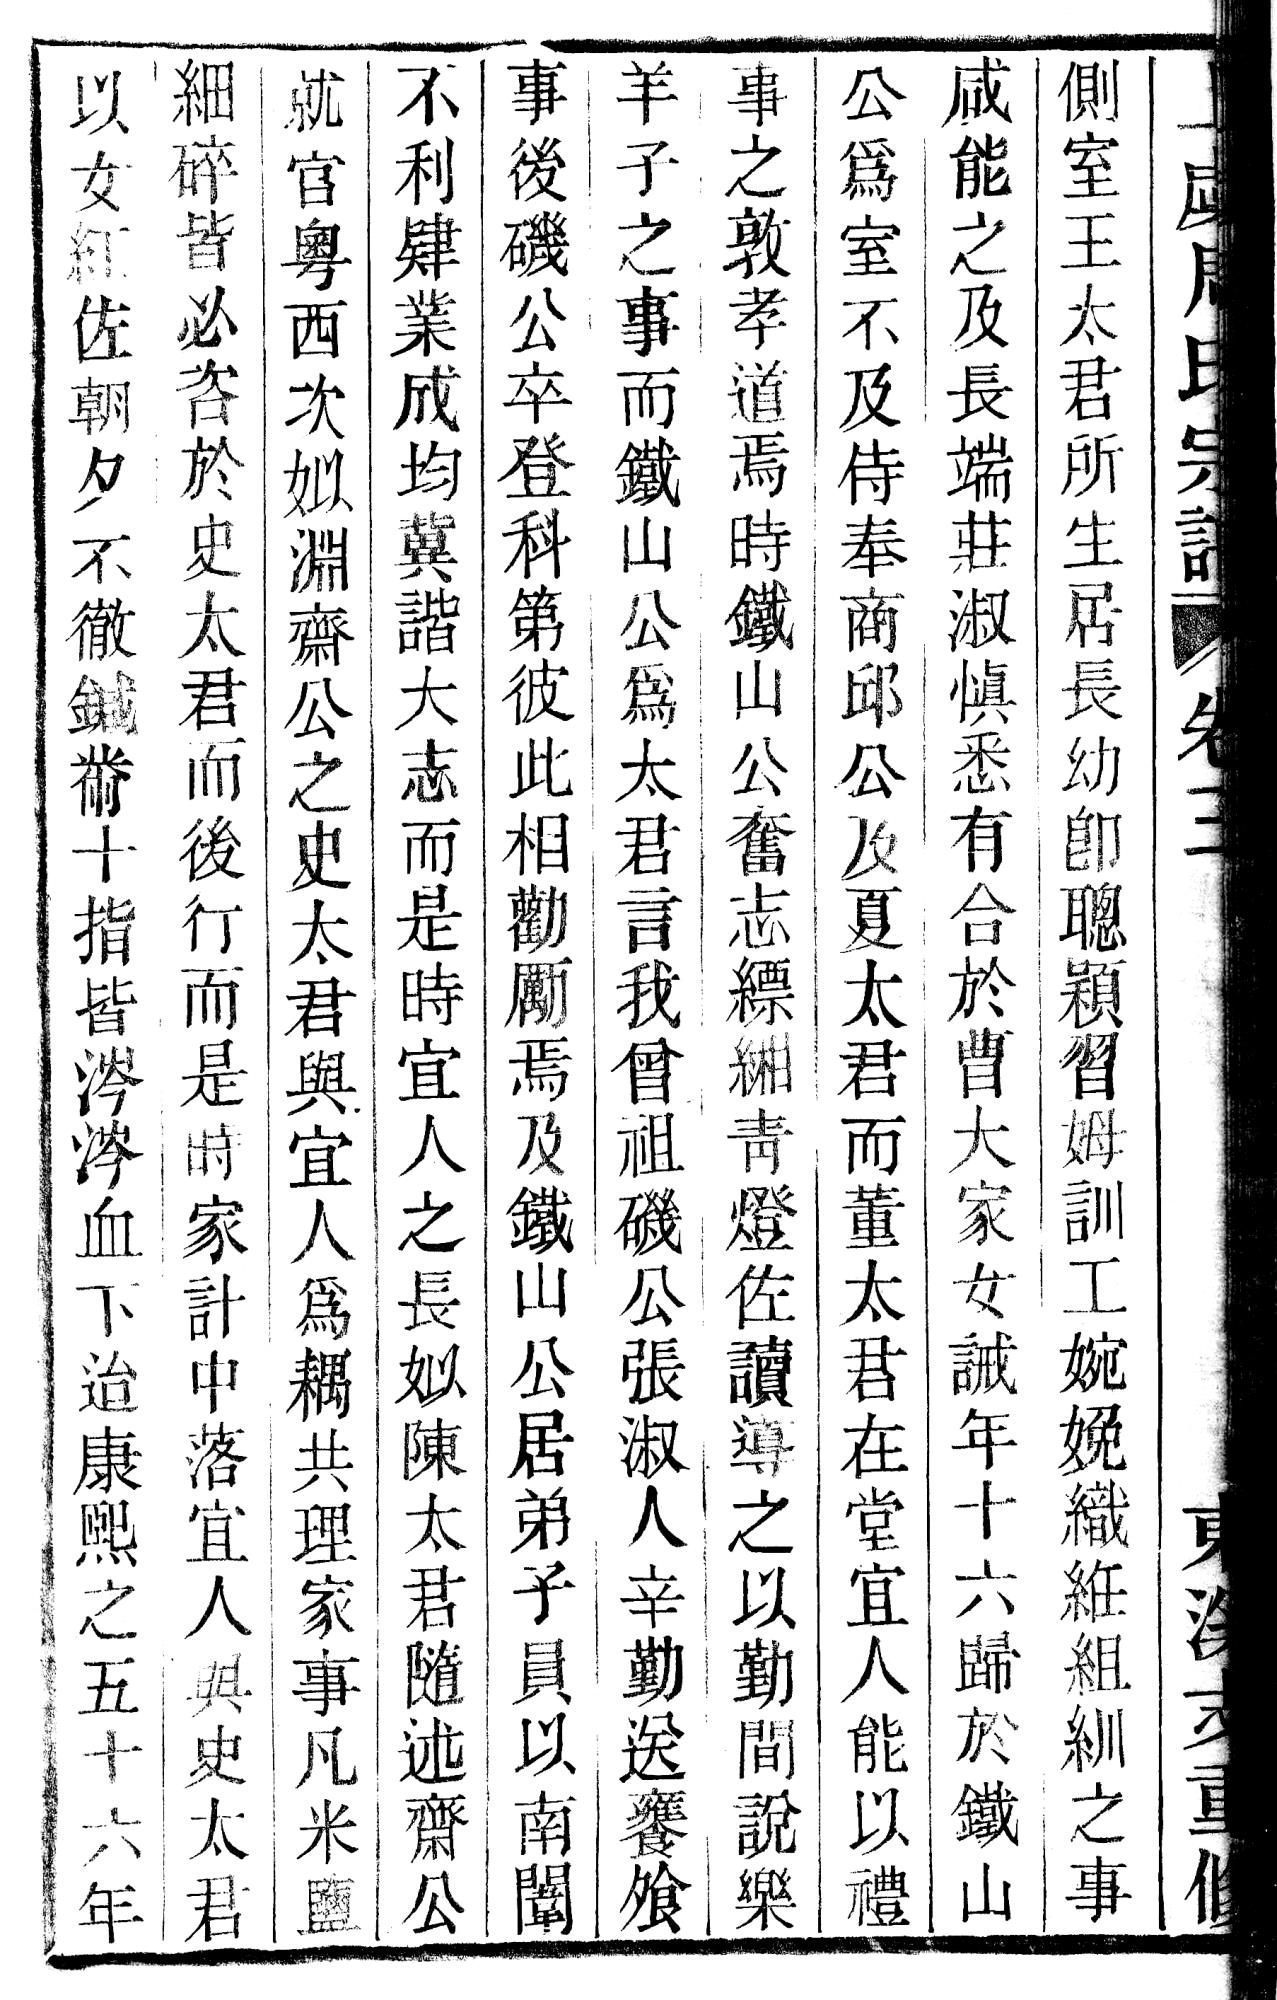 氏宗譜 卷三 重修
側室王太君所生居長幼卽聰穎習姆訓工婉娩織紝組紃之事
咸能之及長端莊淑愼悉有合於曹大家女誡年十六歸於鐵山
公爲室不及侍奉商邱公及夏太君而董太君在堂宜人能以禮
事之敦孝道焉時鐵山公奮志縹緗靑燈佐讀導之以勤間說樂
羊子之事而鐵山公爲太君言我曾祖磯公張淑人辛勤送饔飧
事後磯公卒登科第彼此相勸勵焉及鐵山公居弟子員以南闈
不利肄業成均冀諧大志而是時宜人之長姒陳太君隨述齋公
就官粤西次姒淵齋公之史太君與宜人爲耦共理家事凡米鹽
細碎皆必咨於史太君而後行而是時家計中落宜人與史太君
以女紅佐朝夕不徹鍼黹十指皆涔涔血下迨康熙之五十六年